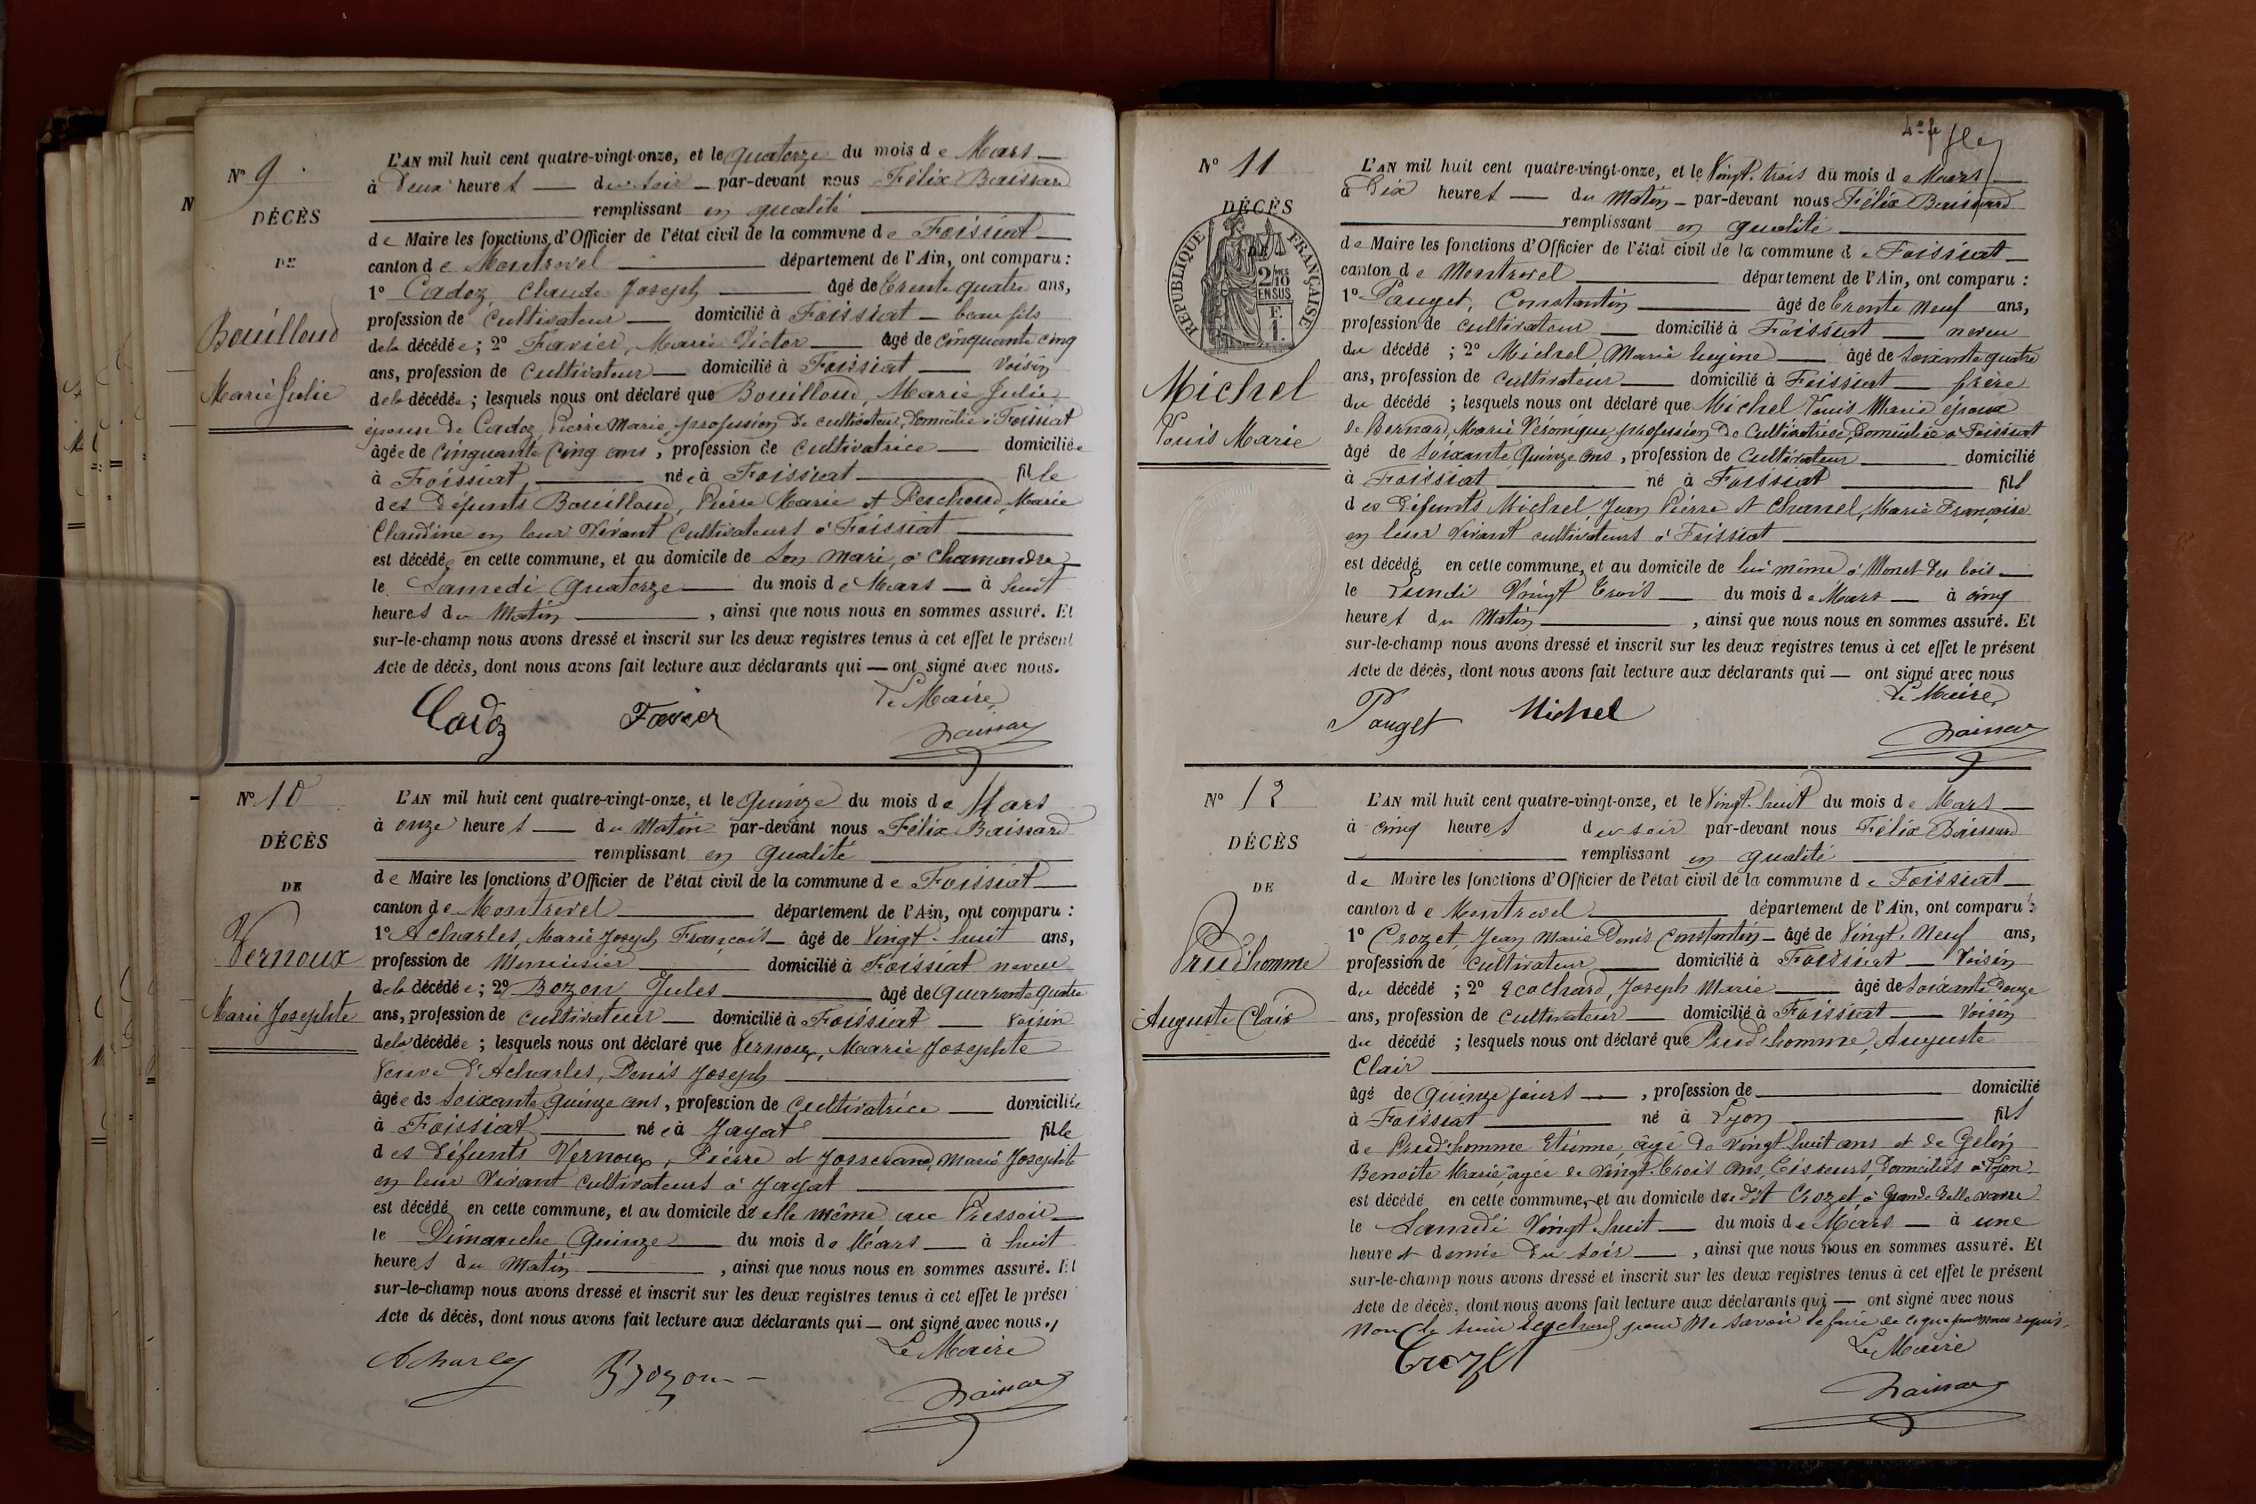 N° 9
DÉCÈS
DE
Bouilloud
Marie Julie
L'AN mil huit cent quatre-vingt-onze, et le quatorze du mois de Mars
à Deux heures du soir par-devant nous Félix Baissard
remplissant en qualité
de Maire les fonctions d'Officier de l'état civil de la commune de Foissiat
canton de Montrevel département de l'Ain, ont comparu :
1° Cadoz, Claude Joseph âgé de trente quatre ans,
profession de cultivateur domicilié à Foissiat beau fils
de la décédée ; 2° Favier, Marie Victor âgé de cinquante cinq
ans, profession de cultivateur domicilié à Foissiat Voisin
de la décédée ; lesquels nous ont déclaré que Bouilloud, Marie Julie
épouse de Cadoz, Pierre Marie, profession de cultivateur, domicilié à Foissiat
âgée de cinquante cinq ans, profession de cultivatrice domiciliée
à Foissiat née à Foissiat fille
des défunts Bouilloud, Pierre Marie et Perchoud, Marie
Claudine en leur vivant cultivateurs à Foissiat
est décédée en cette commune, et au domicile de son mari, à Chamandre
le Samedi quatorze du mois de Mars à huit
heures du Matin , ainsi que nous nous en sommes assuré. Et
sur-le-champ nous avons dressé et inscrit sur les deux registres tenus à cet effet le présent
Acte de décès, dont nous avons fait lecture aux déclarants qui — ont signé avec nous.
Le Maire,
Cadoz Favier Baissard
N° 10
DÉCÈS
DE
Vernoux
Marie Josephte
L'AN mil huit cent quatre-vingt-onze, et le quinze du mois de Mars
à onze heures du Matin par-devant nous Félix Baissard
remplissant en qualité
de Maire les fonctions d'Officier de l'état civil de la commune de Foissiat
canton de Montrevel département de l'Ain, ont comparu :
1° Acharles, Marie Joseph François âgé de Vingt-huit ans,
profession de Menuisier domicilié à Foissiat neveu
de la décédée ; 2° Bozon Jules âgé de quarante quatre
ans, profession de cultivateur domicilié à Foissiat voisin
de la décédée ; lesquels nous ont déclaré que Vernoux, Marie Josephte
Veuve d'Acharles, Denis Joseph
âgée de soixante quinze ans, profession de cultivatrice domiciliée
à Foissiat née à Jayat fille
des défunts Vernoux, Pierre et Josserand, Marie Josephte
en leur vivant cultivateurs à Jayat
est décédé en cette commune, et au domicile de elle même au Pressoir
le Dimanche quinze du mois de Mars à huit
heures du Matin , ainsi que nous nous en sommes assuré. Et
sur-le-champ nous avons dressé et inscrit sur les deux registres tenus à cet effet le présen
Acte de décès, dont nous avons fait lecture aux déclarants qui — ont signé avec nous.
Le Maire
Acharles Bozon Baissard
4e
N° 11
DÉCÈS
RÉPUBLIQUE FRANÇAISE
2/10 EN SUS
F. 1.
Michel
Louis Marie
L'AN mil huit cent quatre-vingt-onze, et le Vingt-trois du mois de Mars
à Dix heures du Matin par-devant nous Félix Baissard
remplissant en qualité
de Maire les fonctions d'Officier de l'état civil de la commune de Foissiat
canton de Montrevel département de l'Ain, ont comparu :
1° Pauget, Constantin âgé de trente neuf ans,
profession de cultivateur domicilié à Foissiat neveu
du décédé ; 2° Michel Marie Eugène âgé de soixante quatre
ans, profession de cultivateur domicilié à Foissiat frère
du décédé ; lesquels nous ont déclaré que Michel Louis Marie époux
de Bernard Marie Véronique, profession de cultivatrice, domiciliée à Foissiat
âgé de soixante quinze ans, profession de cultivateur domicilié
à Foissiat né à Foissiat fils
des défunts Michel, Jean Pierre et Chanel, Marie Françoise
en leur vivant cultivateurs à Foissiat
est décédé en cette commune, et au domicile de lui même à Monet des bois
le Lundi Vingt trois du mois de Mars à cinq
heures du Matin , ainsi que nous nous en sommes assuré. Et
sur-le-champ nous avons dressé et inscrit sur les deux registres tenus à cet effet le présent
Acte de décès, dont nous avons fait lecture aux déclarants qui — ont signé avec nous
Le Maire,
Pauget Michel Baissard
N° 12
DÉCÈS
DE
Prud'homme
Auguste Clair
L'AN mil huit cent quatre-vingt-onze, et le Vingt-huit du mois de Mars
à cinq heures du soir par-devant nous Félix Baissard
remplissant en qualité
de Maire les fonctions d'Officier de l'état civil de la commune de Foissiat
canton de Montrevel département de l'Ain, ont comparu :
1° Crozet, Jean Marie Denis Constantin âgé de Vingt-Neuf ans,
profession de cultivateur domicilié à Foissiat Voisin
du décédé ; 2° Ecochard, Joseph Marie âgé de soixante Douze
ans, profession de cultivateur domicilié à Foissiat Voisin
du décédé ; lesquels nous ont déclaré que Prud'homme, Auguste
Clair
âgé de quinze jours , profession de domicilié
à Foissiat né à Lyon fils
de Prud'homme Etienne, âgé de vingt huit ans et de Gelin
Benoite Marie, âgée de vingt-trois ans, Tisseurs, Domiciliés à Lyon
est décédé en cette commune, et au domicile de dit Crozet, à Grande Bellevavre
le Samedi Vingt huit du mois de Mars à une
heure et demie du soir , ainsi que nous nous en sommes assuré. Et
sur-le-champ nous avons dressé et inscrit sur les deux registres tenus à cet effet le présent
Acte de décès, dont nous avons fait lecture aux déclarants qui — ont signé avec nous
Non le sieur Ecochard pour ne savoir le faire de ce par nous requis.
Le Maire
Crozet Baissard